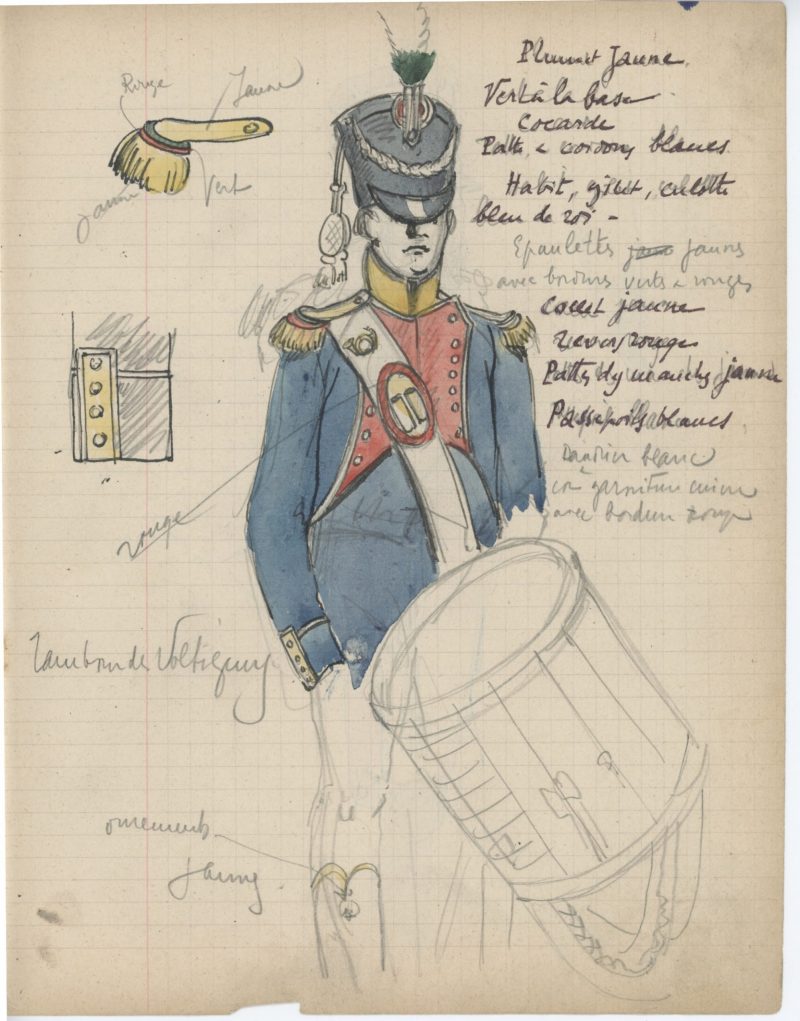 Rouge
Jaune
jaune
Vert
Plumet Jaune
Vert à la base
Cocarde
Patte & cordons blancs
Habit, gilet, culotte
bleu de roi -
Epaulettes jaunes
avec bordures verts & rouges
Collet jaune
revers rouges
Pattes de manches jaunes
Passepoils blancs
Baudrier blanc
garniture cuivre
avec bordure rouge
rouge
Tambour des Voltigeurs
ornements
jaunes